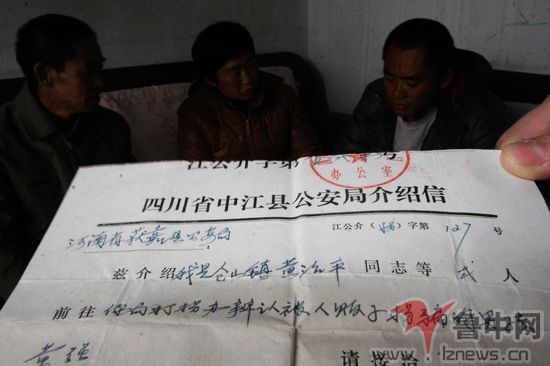 江公介字第 号
办公室
四川省中江县公安局介绍信
江公介( )字第 127 号
河南省获嘉县公安局
兹介绍 我县仓山镇黄治平 同志等 人
前往 你局打拐办辨认被人贩子拐骗的男孩
黄强
请接洽
鲁中网
lznews.cn